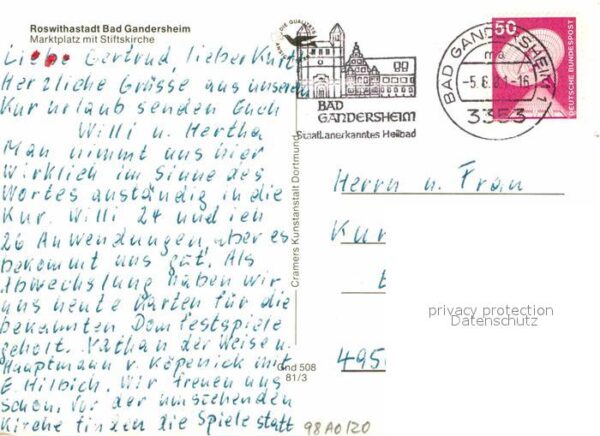 Roswithastadt Bad Gandersheim
Marktplatz mit Stiftskirche
Liebe Gertrud, lieber Kurt
Herzliche Grüsse aus unserem
Kururlaub senden Euch
Willi u. Hertha
Man nimmt uns hier
wirklich im Sinne des
Wortes anständig in die
Kur. Willi 24 und ich
26 Anwendungen, aber es
bekommt uns gut. Als
Abwechslung haben wir
uns heute Karten für die
bekannten Domfestspiele
geholt. Nathan der Weise u.
Hauptmann v. Köpenick mit
E. Hilbich. Wir freuen uns
schon. Vor der umstehenden
Kirche finden die Spiele statt
Cramers Kunstanstalt Dortmund
Gnd 508
81/3
98A0120
BAD
GANDERSHEIM
Staatl.anerkanntes Heilbad
BAD GANDERSHEIM 1
-5.6.81-16
3353
50
DEUTSCHE BUNDESPOST
Herrn u. Frau
Kur
495
privacy protection
Datenschutz